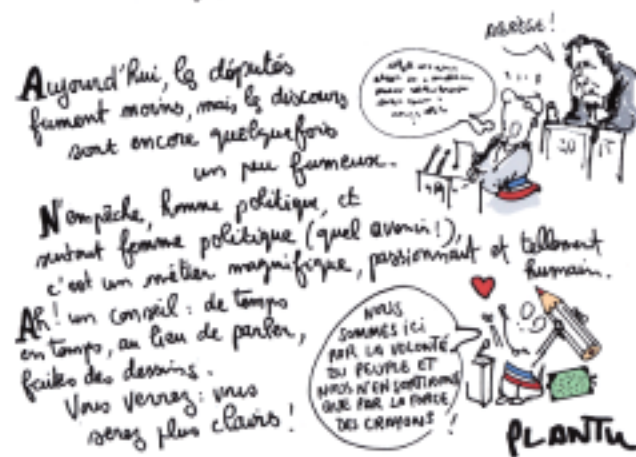 ABRÈGE !
Aujourd'hui, les députés
fument moins, mais, les discours
sont encore quelquefois
un peu fumeux.
N'empêche, homme politique, et
surtout femme politique (quel avenir !),
c'est un métier magnifique, passionnant et tellement
humain.
Ah ! un conseil : de temps
en temps, au lieu de parler,
faites des dessins.
Vous verrez : vous
serez plus clairs !
NOUS
SOMMES ICI
PAR LA VOLONTÉ
DU PEUPLE ET
NOUS N'EN SORTIRONS
QUE PAR LA FORCE
DES CRAYONS !
PLANTU